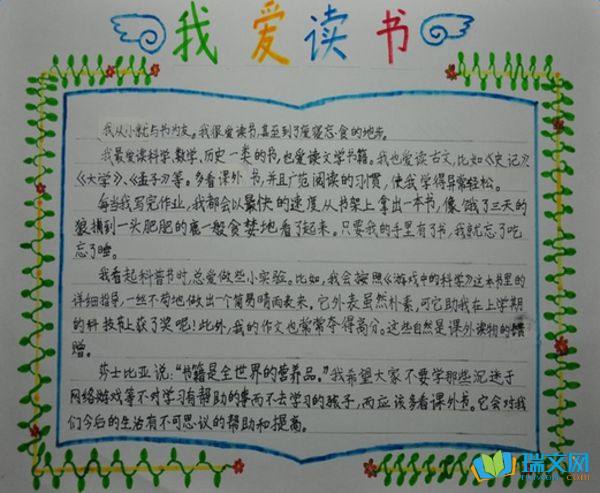 我爱读书
我从小就与书为友。我很爱读书,甚至到了废寝忘食的地步。
我最爱读科学、数学、历史一类的书,也爱读文学书籍。我也爱读古文,比如《史记》、
《大学》、《孟子》等。多看课外书,并且广范阅读的习惯,使我学得异常轻松。
每当我写完作业,我都会以最快的速度从书架上拿出一本书,像饿了三天的
狼捕到一头肥肥的鹿一般贪婪地看了起来。只要我的手里有了书,我就忘了吃
忘了睡。
我看起科普书时,总爱做些小实验。比如,我会按照《游戏中的科学》这本书里的
详细指导,一丝不苟地做出一个简易晴雨表来,它外表虽然朴素,可它助我在上学期
的科技节上获了奖呢!此外,我的作文也常常夺得高分。这些自然是课外读物的馈
赠。
莎士比亚说:“书籍是全世界的营养品。”我希望大家不要学那些沉迷于
网络游戏等不对学习有帮助的事而不去学习的孩子,而应该多看课外书。它会对我
们今后的生活有不可思议的帮助和提高。
瑞文网